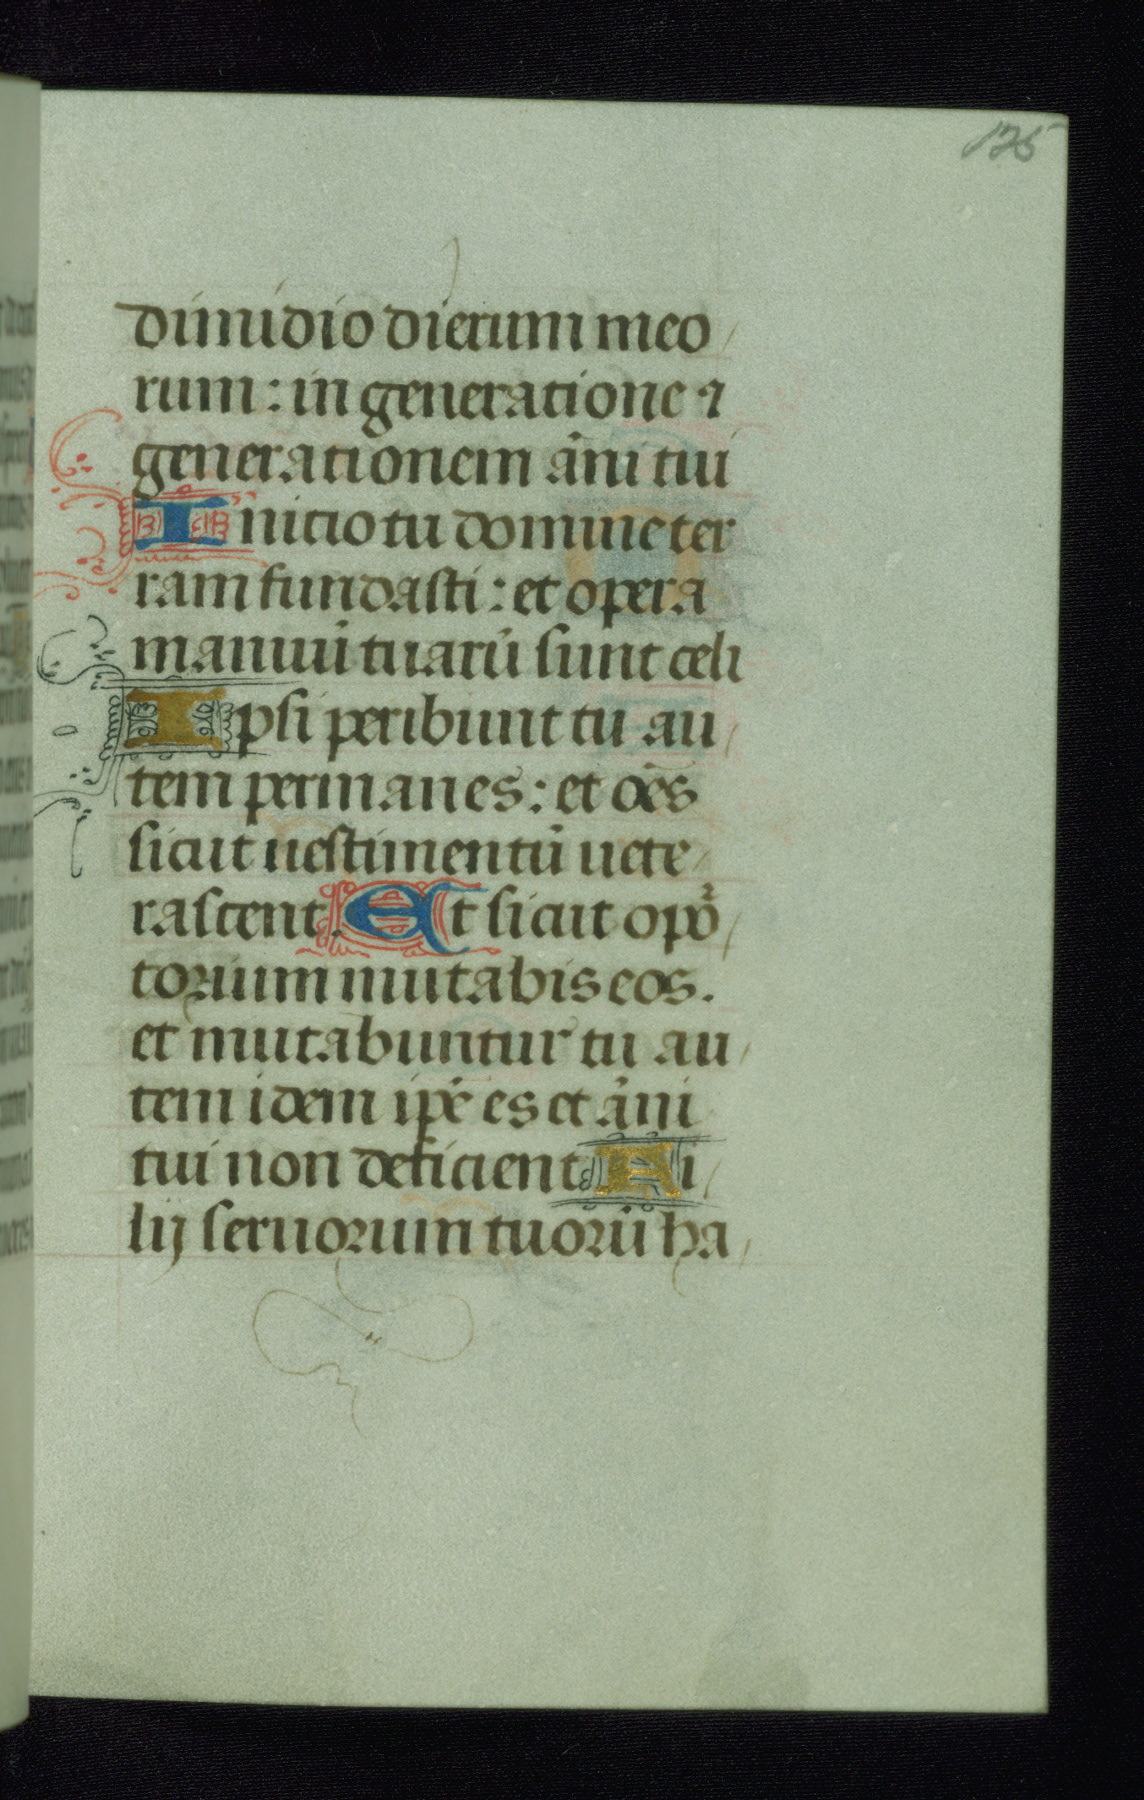 135
dimidio dierum meo/
rum: in generatione ⁊
generationem ãni tui
Initio tu domine ter
ram fundasti: et opera
manuũ tuarũ sunt celi
Ipsi peribunt tu au/
tem permanes: et oẽs
sicut uestimentũ uete/
rascent. Et sicut opo᷑/
torium mutabis eos.
et mutabuntur tu au/
tem idem ip̃e es et ãni
tui non deficient Fi/
lij seruorum tuorũ ha/